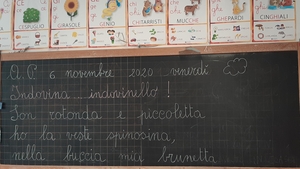 CESPUGLIO GIRASOLE GENIO CHITARRISTI MUCCHE GHEPARDI CINGHIALI
6 novembre 2020 venerdì
Indovina indovinello !
Son rotonda e piccoletta
ho la veste spinosina,
nella buccia mia brunetta